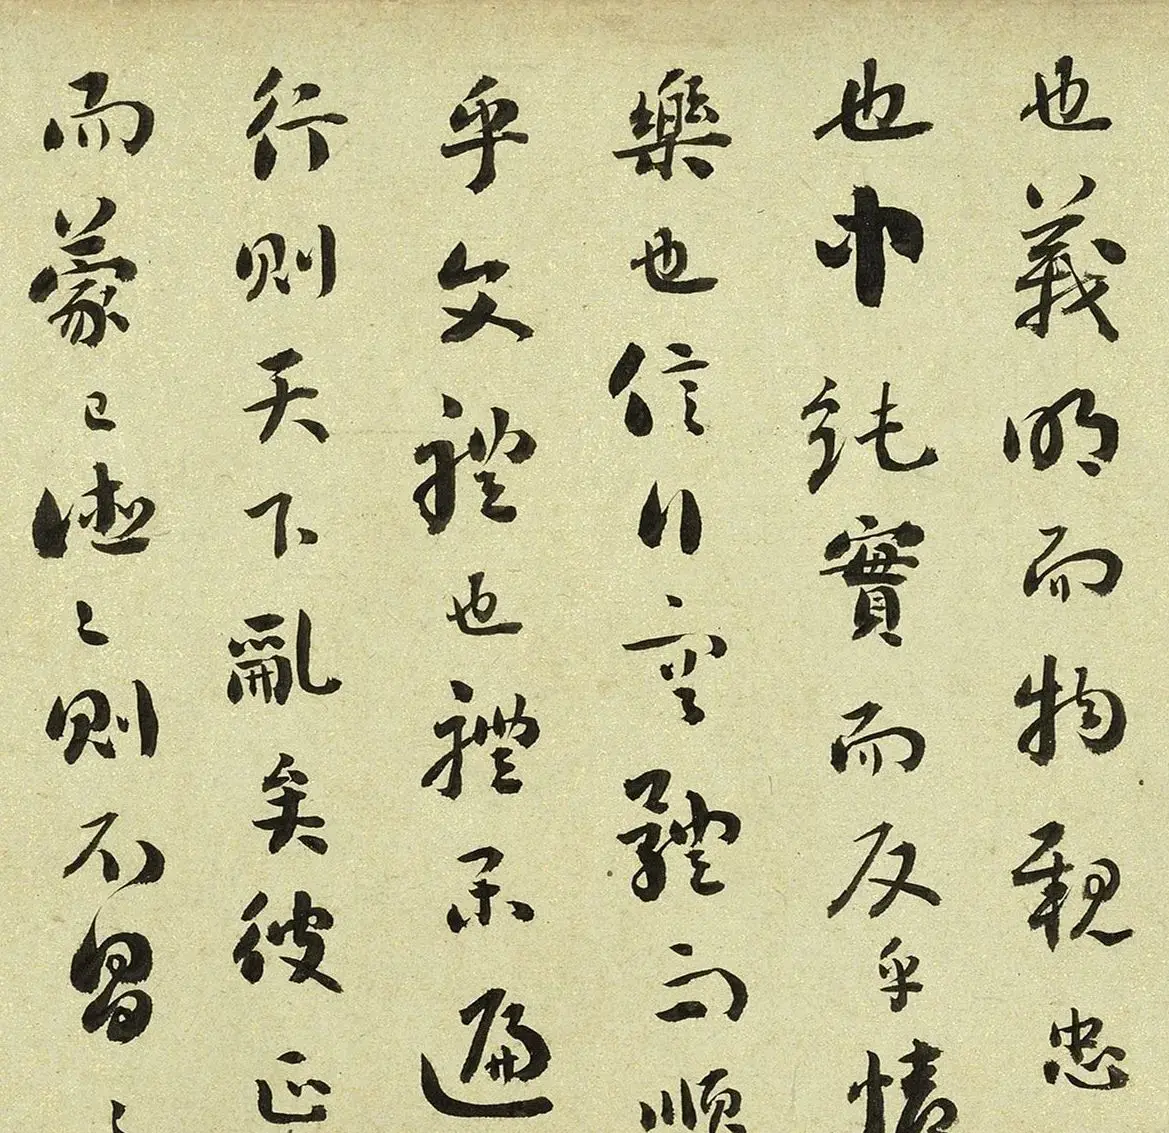 也義明而物親忠
也中純實而反乎情
樂也信行容體而順
乎文禮也禮樂遍
行則天下亂矣彼正
而蒙己德德則不冒冒